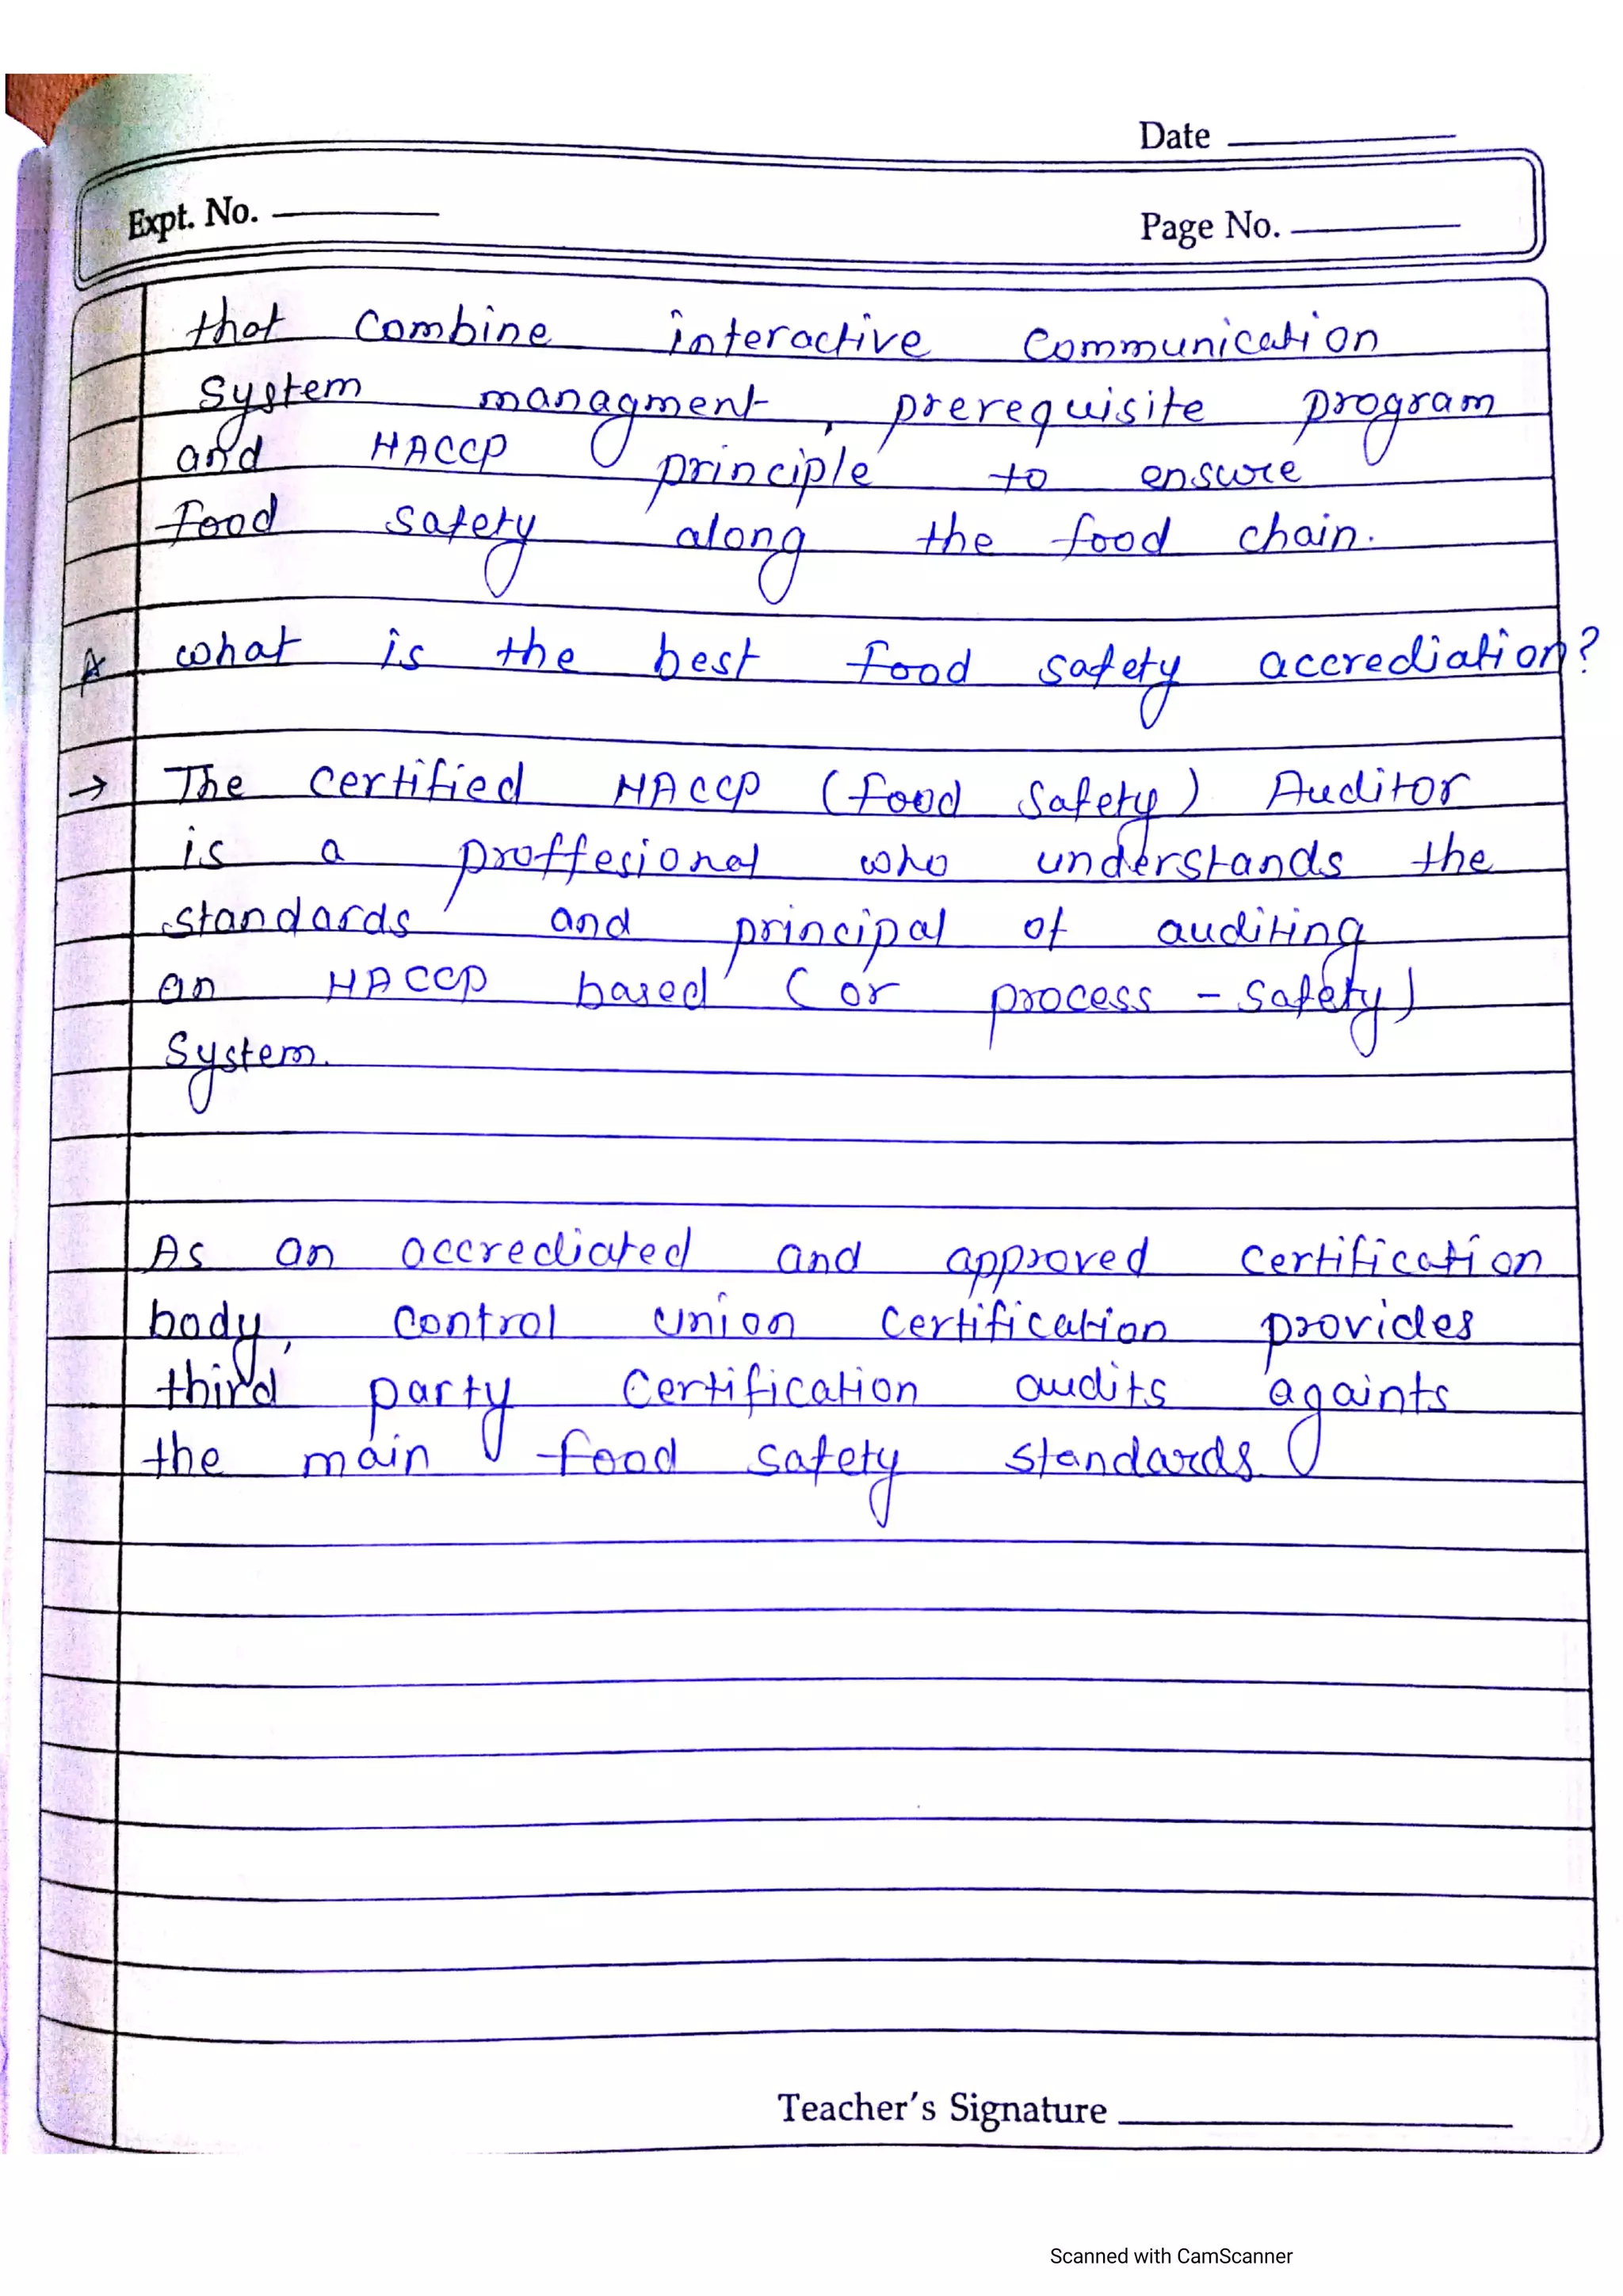 Date
Expt. No.
Page No.
that combine interactive communication
System managment, prerequisite program
and HACCP principle to ensure
food safety along the food chain.
what is the best food safety accrediation?
→ The certified HACCP (food safety) Auditor
is a proffesional who understands the
standards and principal of auditing
an HACCP based (or process - safety)
System.
As an accrediated and approved certification
body, control union certification provides
third party certification audits againts
the main food safety standards.
Teacher's Signature
Scanned with CamScanner